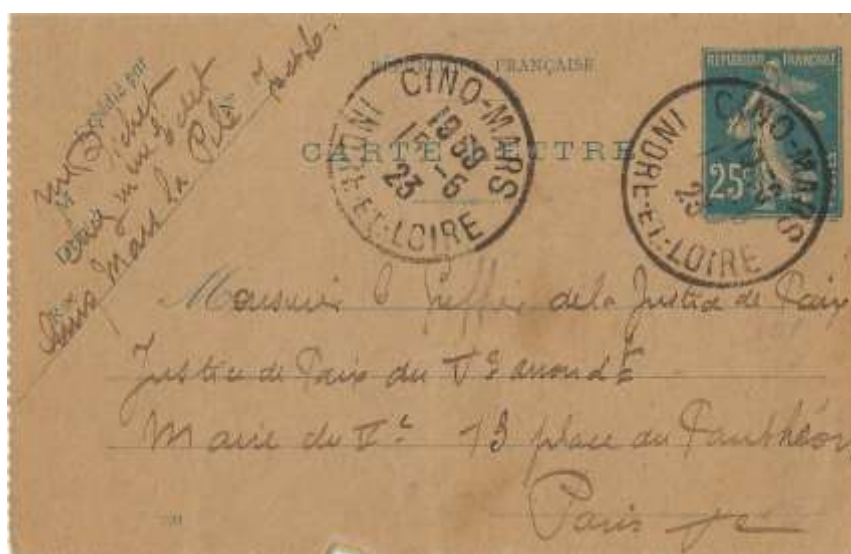 RÉPUBLIQUE FRANÇAISE
CARTE-LETTRE
RÉPUBLIQUE FRANÇAISE
25c
CINQ-MARS
19 30
15 -6
23
INDRE-ET-LOIRE
CINQ-MARS
INDRE-ET-LOIRE
Expédié par
M
Pichet
chez
Cinq Mars La Pile
Monsieur le Greffier de la Justice de Paix
Justice de Paix du Ve arrondt
Mairie du Ve 13 place du Panthéon
Paris Ve